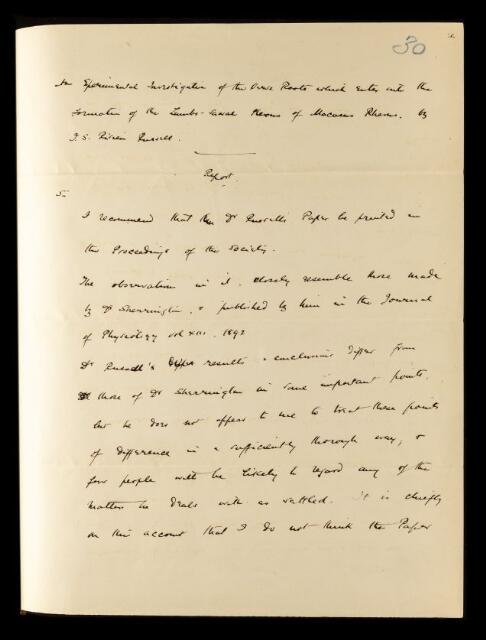 30
An Experimental Investigation of the Nerve Roots which enter into the
formation of the Lumbo-sacral Plexus of Macacus Rhesus. by
J. S. Risien Russell.
Report.
I recommend that the Dr Russell's Paper be printed in
the Proceedings of the Society.
The observations in it, closely resemble those made
by Dr Sherrington, & published by him in the Journal
of Physiology vol xiii. 1892
Dr Russell's results & conclusions differ from
those of Dr Sherrington in some important points,
but he does not appear to me to treat these points
of difference in a sufficiently thorough way, &
few people will be likely to regard any of the
matters he deals with as settled. It is chiefly
on this account that I do not think the Paper